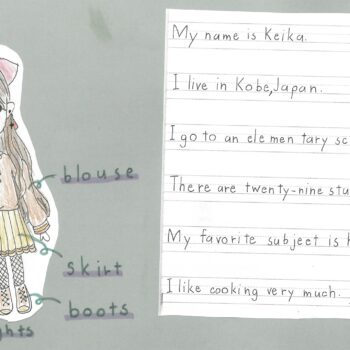 My name is Keika.
I live in Kobe,Japan.
I go to an elementary sc
There are twenty-nine stu
My favorite subject is h
I like cooking very much.
blouse
skirt
boots
ghts